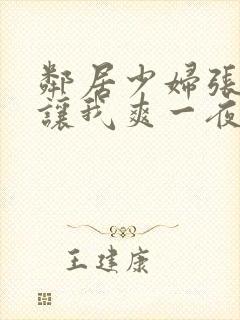 鄰居少婦張
讓我爽一夜
王建康